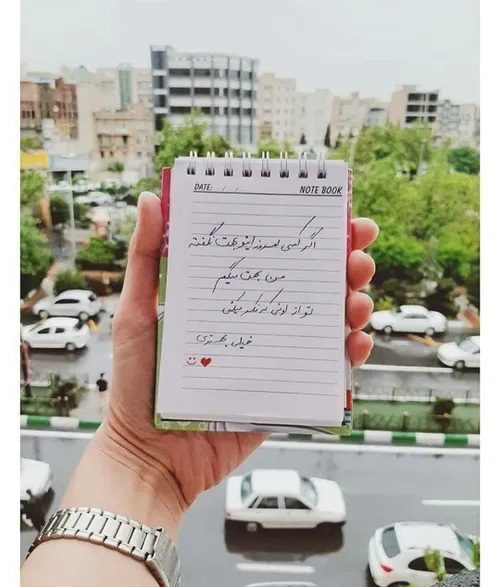 DATE: / / NOTE BOOK
اگر کسی امروز اینو بهت نگفته
من بهت میگم
تو از اونی که فکر میکنی
خیلی بهتری